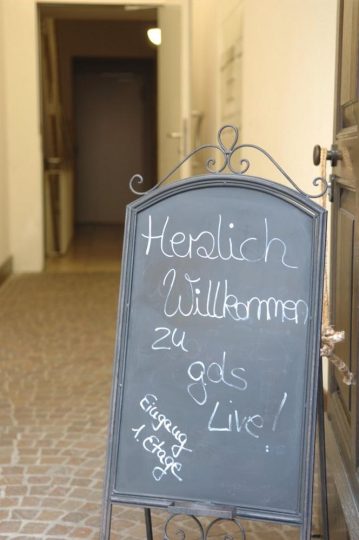 Herzlich
Willkommen
zu
gds
Live!
Eingang
1. Etage